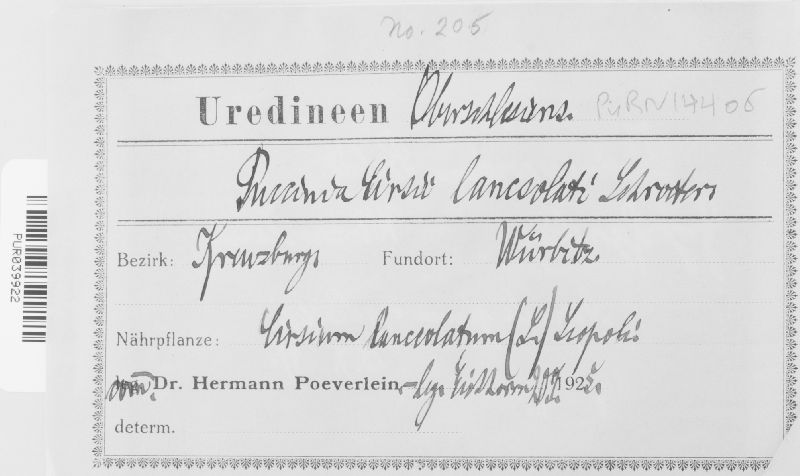 No. 205
Uredineen Oberschlesiens.
PURN14405
Puccinia Cirsii lanceolati Schroeter
Bezirk: Kreuzburg Fundort: Würbitz
Nährpflanze: Cirsium lanceolatum (L.) Scopoli
Dr. Hermann Poeverlein lgt. 192
determ.
PUR039922